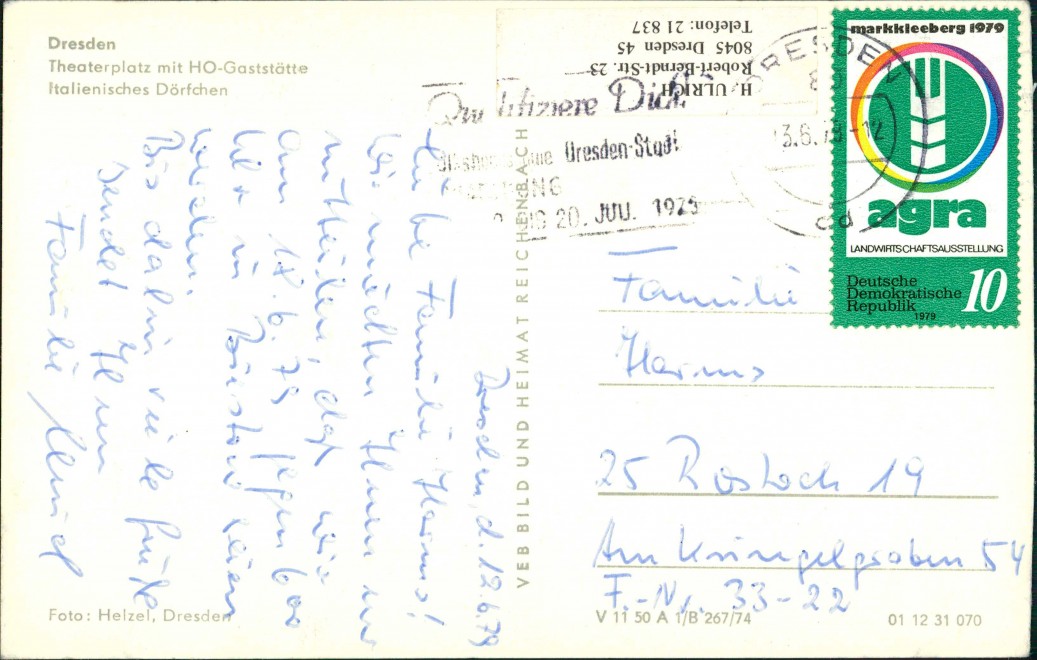 Dresden
Theaterplatz mit HO-Gaststätte
Italienisches Dörfchen
H. ULRICH
Robert-Berndt-Str. 23
8045 Dresden 45
Telefon: 21 837
Qualifiziere Dich
Dresden-Stadt
20. JUU. 1979
DRESDEN
3.6.79-12
cd
markkleeberg 1979
agra
LANDWIRTSCHAFTSAUSSTELLUNG
Deutsche
Demokratische
Republik
1979
10
Dresden, d. 12.6.79
Liebe Familie Harms!
Wir möchten Ihnen nur
mitteilen, daß wir
am 18.6.79 gegen
Uhr in Rostock sein
werden.
Bis dahin viele Grüße
sendet Ihnen
Familie Ulrich
VEB BILD UND HEIMAT REICHENBACH
Familie
Harms
25 Rostock 19
Am Kringelgraben 54
F.-Nr. 33-22
Foto: Helzel, Dresden
V 11 50 A 1/B 267/74
01 12 31 070